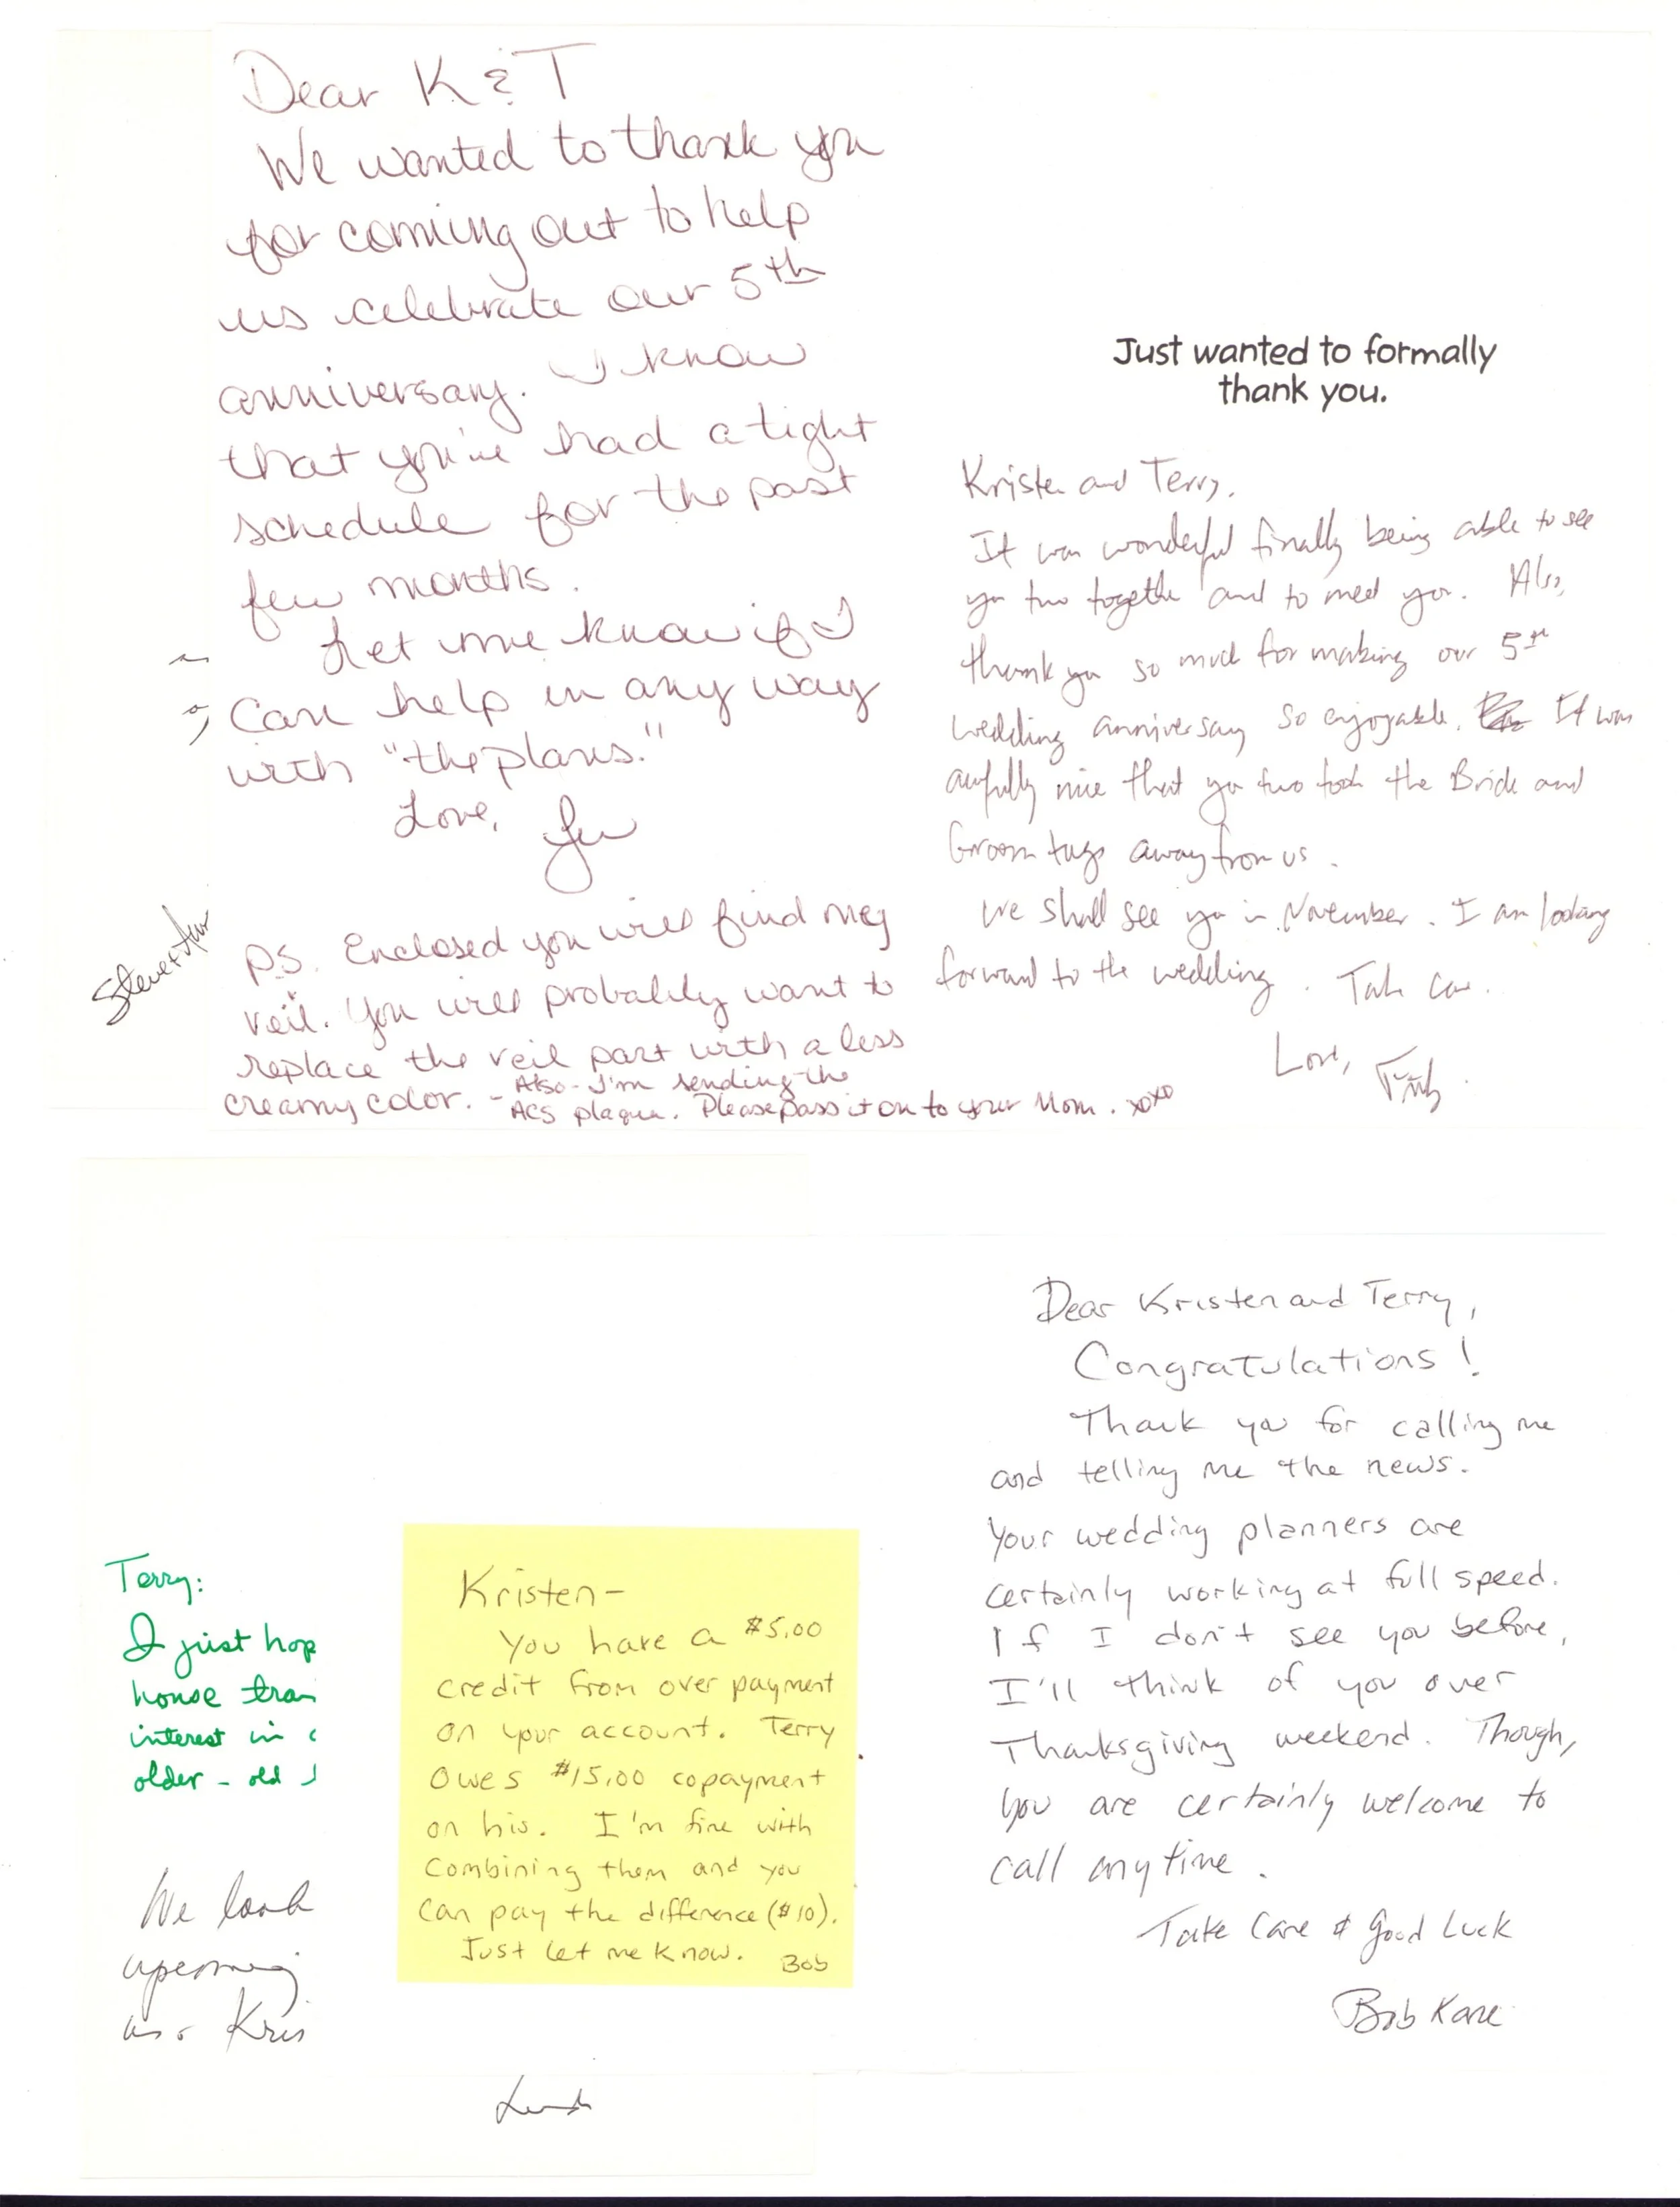 Dear K & T
We wanted to thank you
for coming out to help
us celebrate our 5th
anniversary. I know
that you've had a tight
schedule for the past
few months.
Let me know if I
can help in any way
with "the plans."
Love, Jen
P.S. Enclosed you will find my
veil. You will probably want to
replace the veil part with a less
creamy color. - Also - I'm sending the
ACS plaque. Please pass it on to your Mom. xoxo
Just wanted to formally
thank you.
Kristen and Terry,
It was wonderful finally being able to see
you two together and to meet you. Also,
thank you so much for making our 5th
wedding anniversary so enjoyable. It was
awfully nice that you two took the Bride and
Groom tugs away from us.
We shall see you in November. I am looking
forward to the wedding. Take care.
Love,
Steve +
Terry:
I just hop
house tran
interest in
older - old
We look
upcoming
Kris
Kristen-
You have a $5.00
credit from over payment
on your account. Terry
owes $15.00 copayment
on his. I'm fine with
combining them and you
can pay the difference ($10).
Just let me know. Bob
Dear Kristen and Terry,
Congratulations!
Thank you for calling me
and telling me the news.
Your wedding planners are
certainly working at full speed.
If I don't see you before,
I'll think of you over
Thanksgiving weekend. Though,
you are certainly welcome to
call anytime.
Take Care & Good Luck
Bob Kane